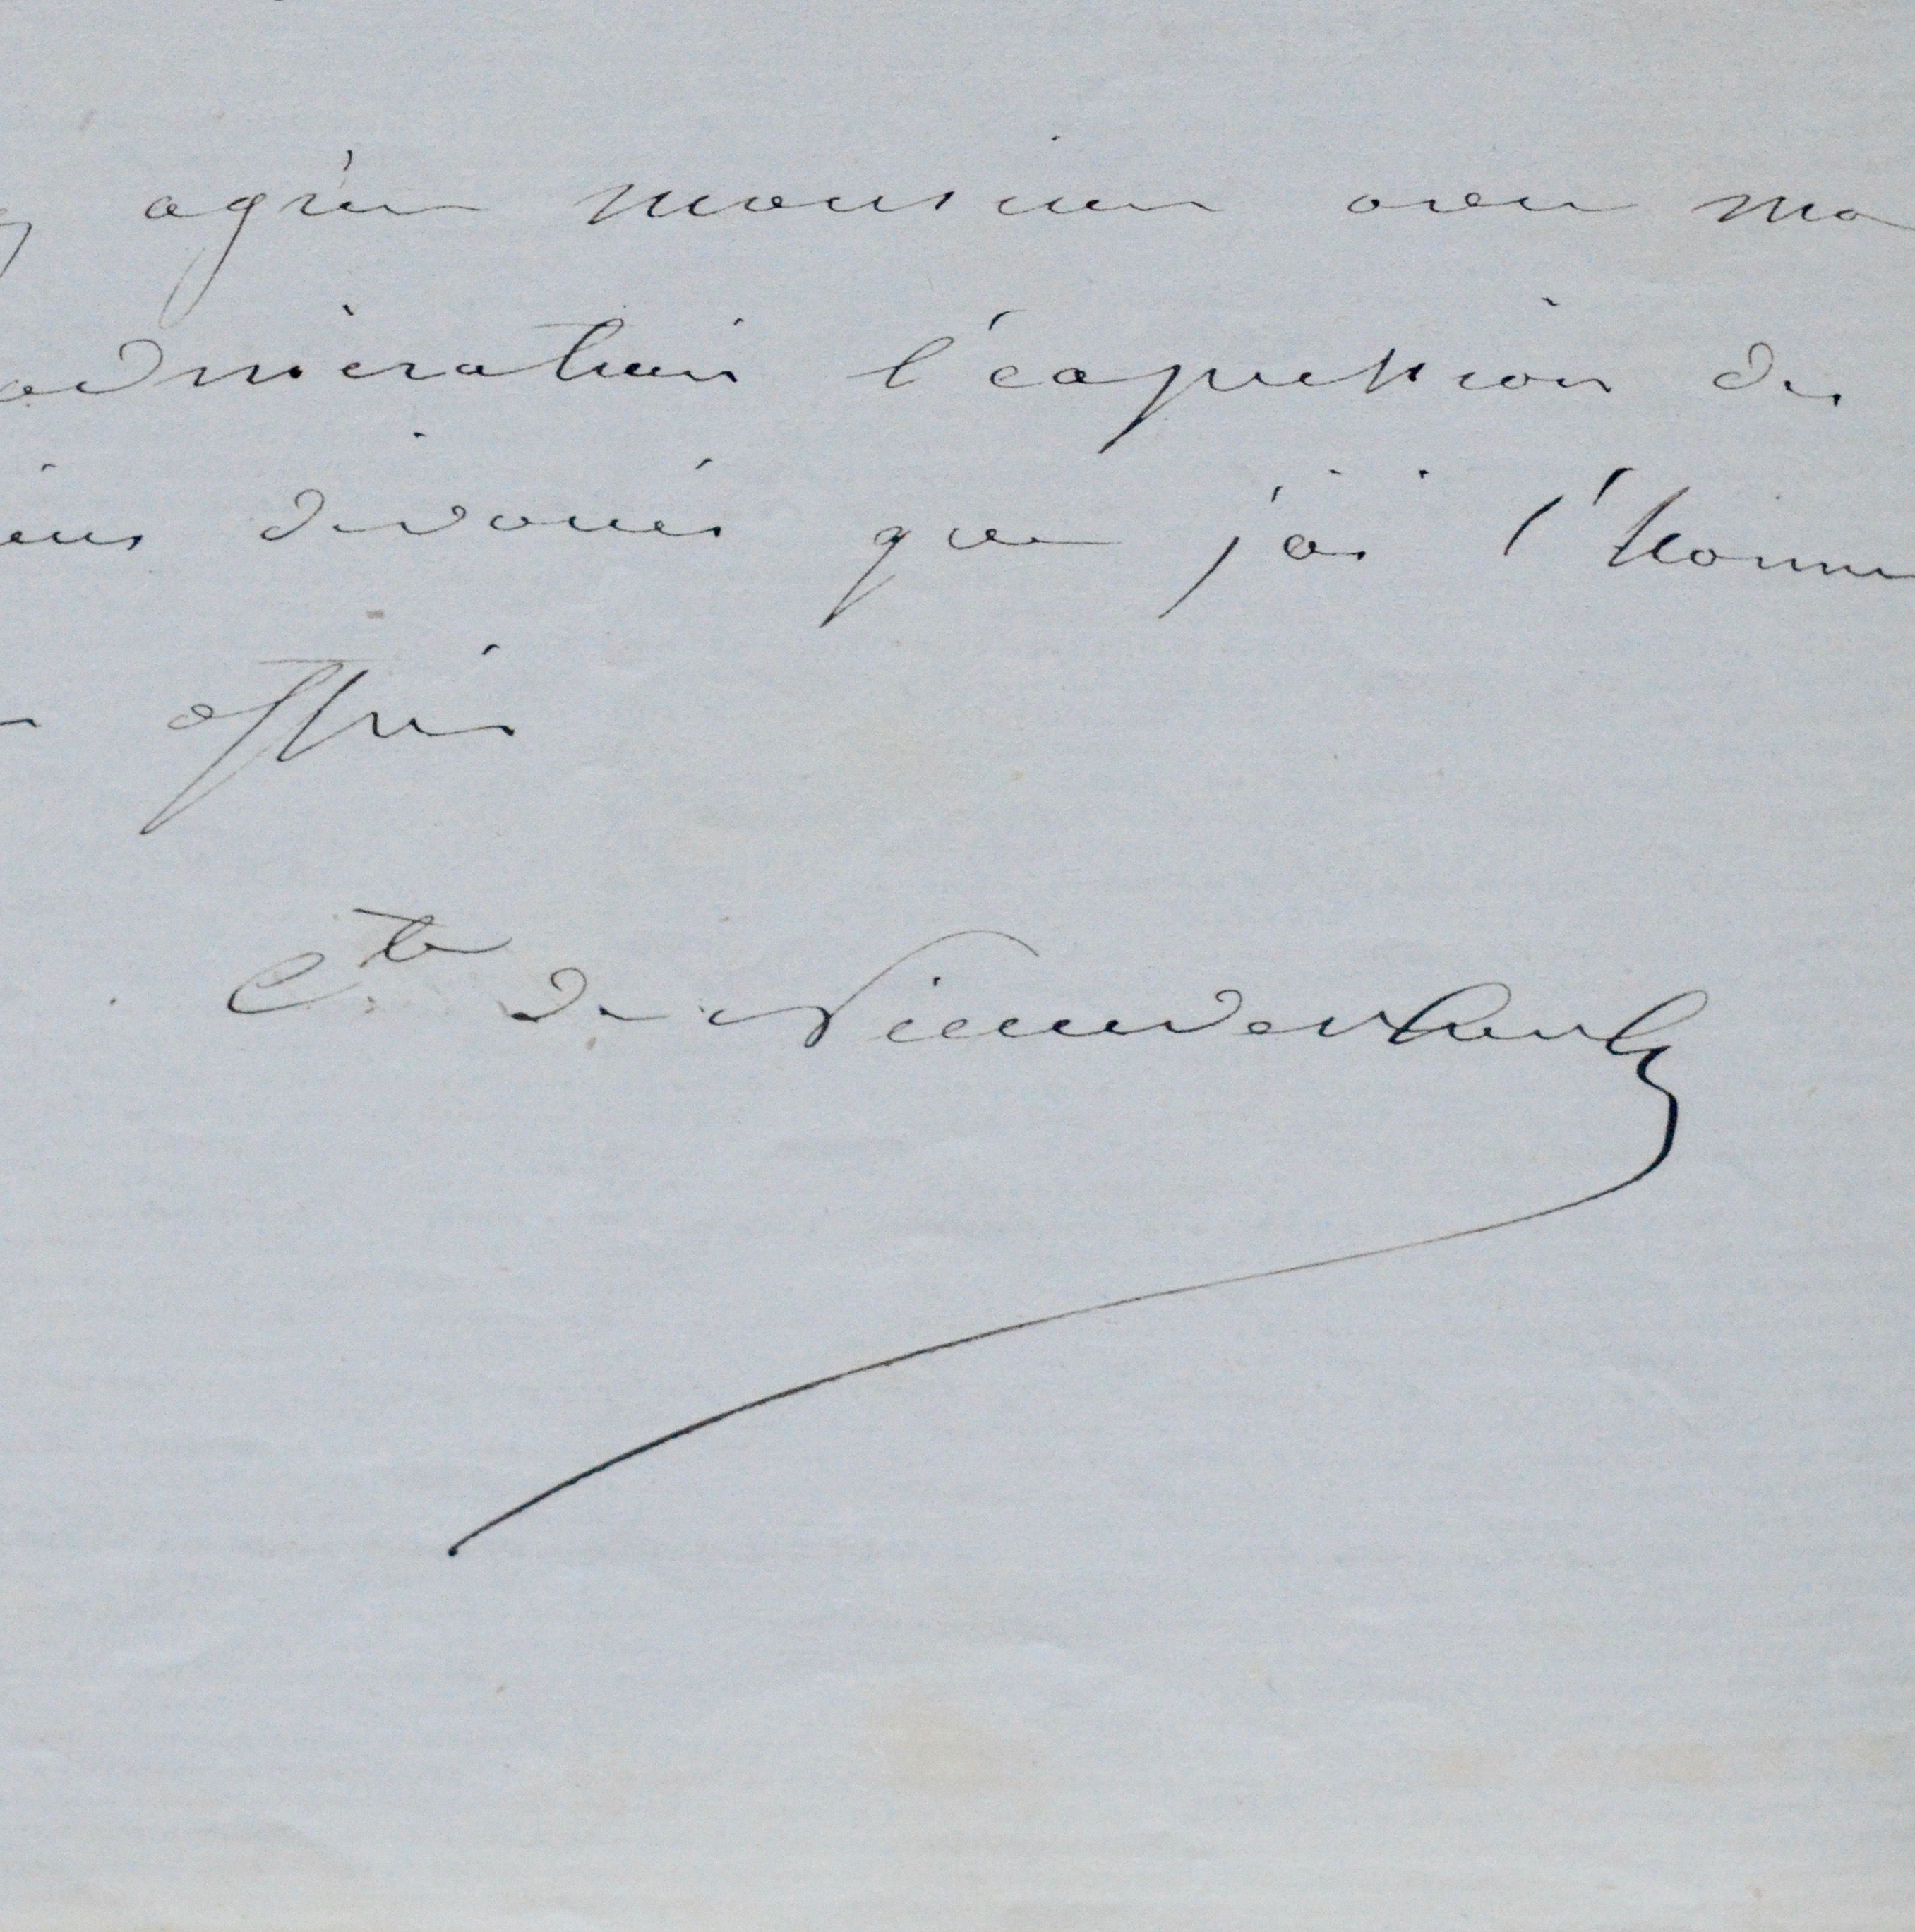 agréer monsieur avec ma
admiration l'expression des
dévoués que j'ai l'honne
offrir
Cte de Nieuwerkerke